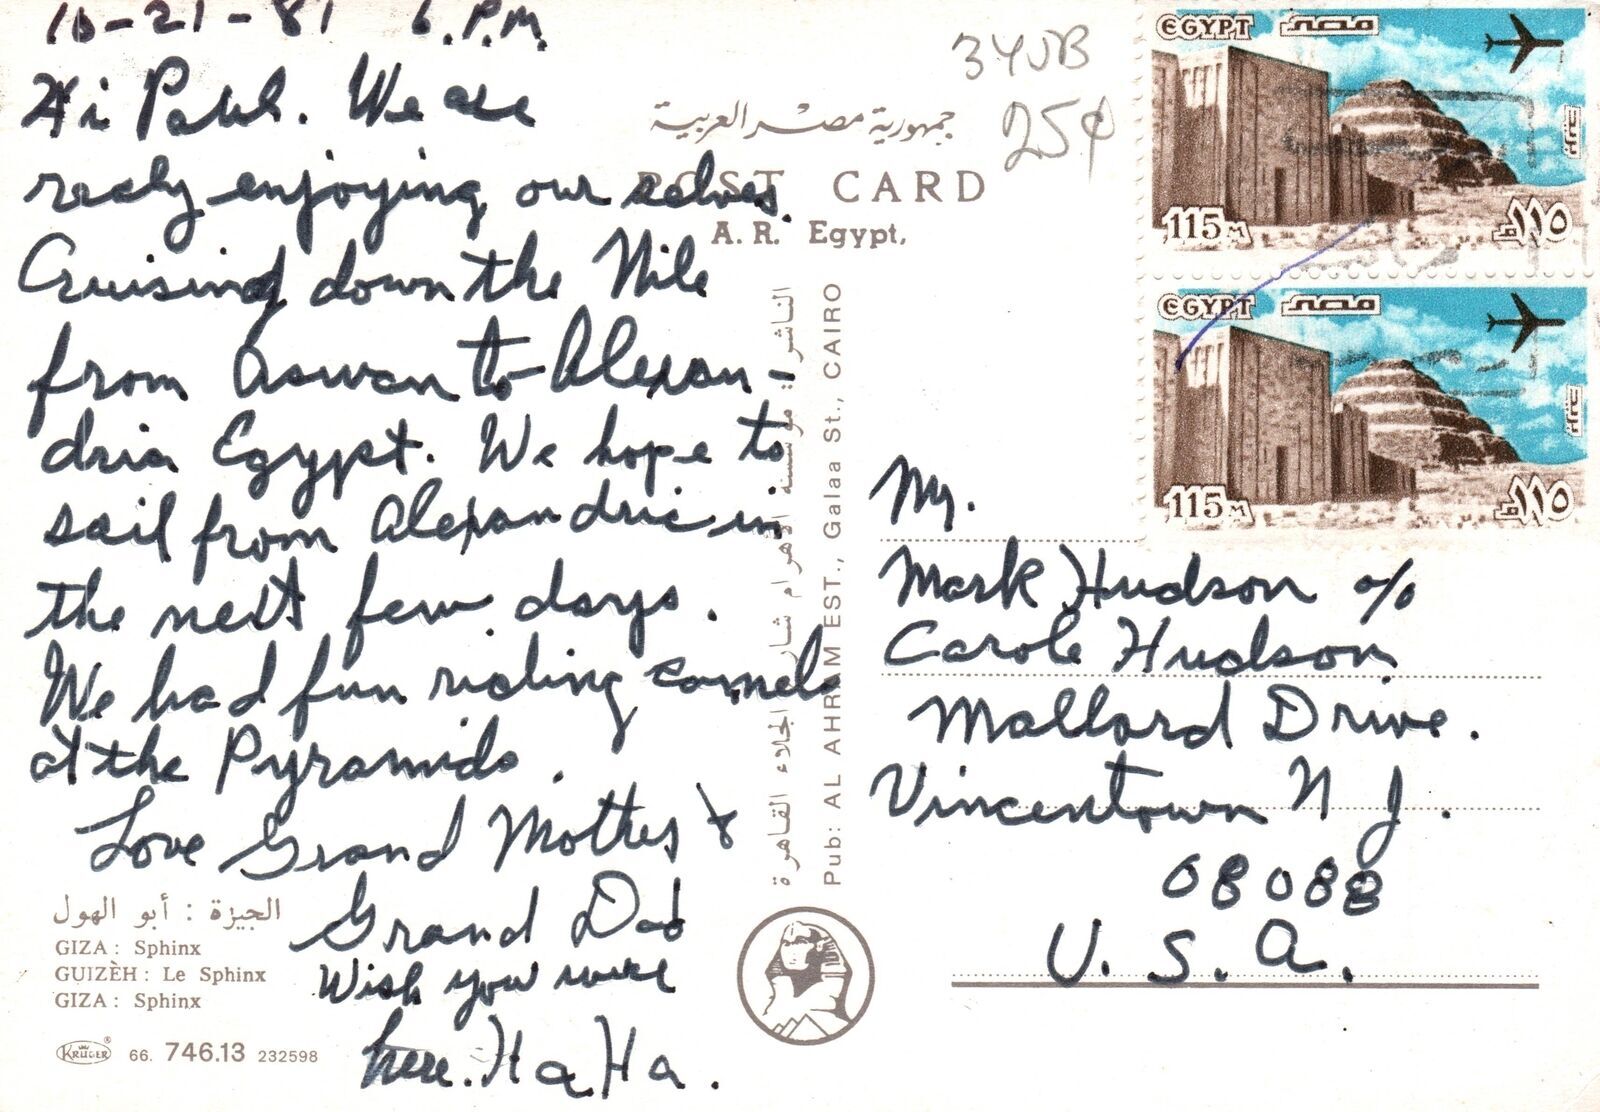 10-21-81 6.P.M.
Hi We are
realy enjoying our selves.
Cruising down the Nile
from Aswan to Alexan-
dria Egypt. We hope to
sail from Alexandria in
the next few days.
We had fun riding camels
at the Pyramids.
Love Grand Mother &
Grand Dad
Wish you were
here. Ha Ha.
الجيزة : أبو الهول
GIZA : Sphinx
GUIZÈH : Le Sphinx
GIZA : Sphinx
KRÜGER 66. 746.13 232598
جمهورية مصر العربية
POST CARD
A. R. Egypt,
الناشر : مؤسسة الأهرام شارع الجلاء القاهرة
Pub: AL AHRAM EST., Galaa St., CAIRO
25¢
EGYPT مصر
115M ١١٥م
EGYPT مصر
115M ١١٥م
Mr.
Mark Hudson c/o
Carole Hudson
Mallard Drive.
Vincentown N J.
08088
U. S. A.